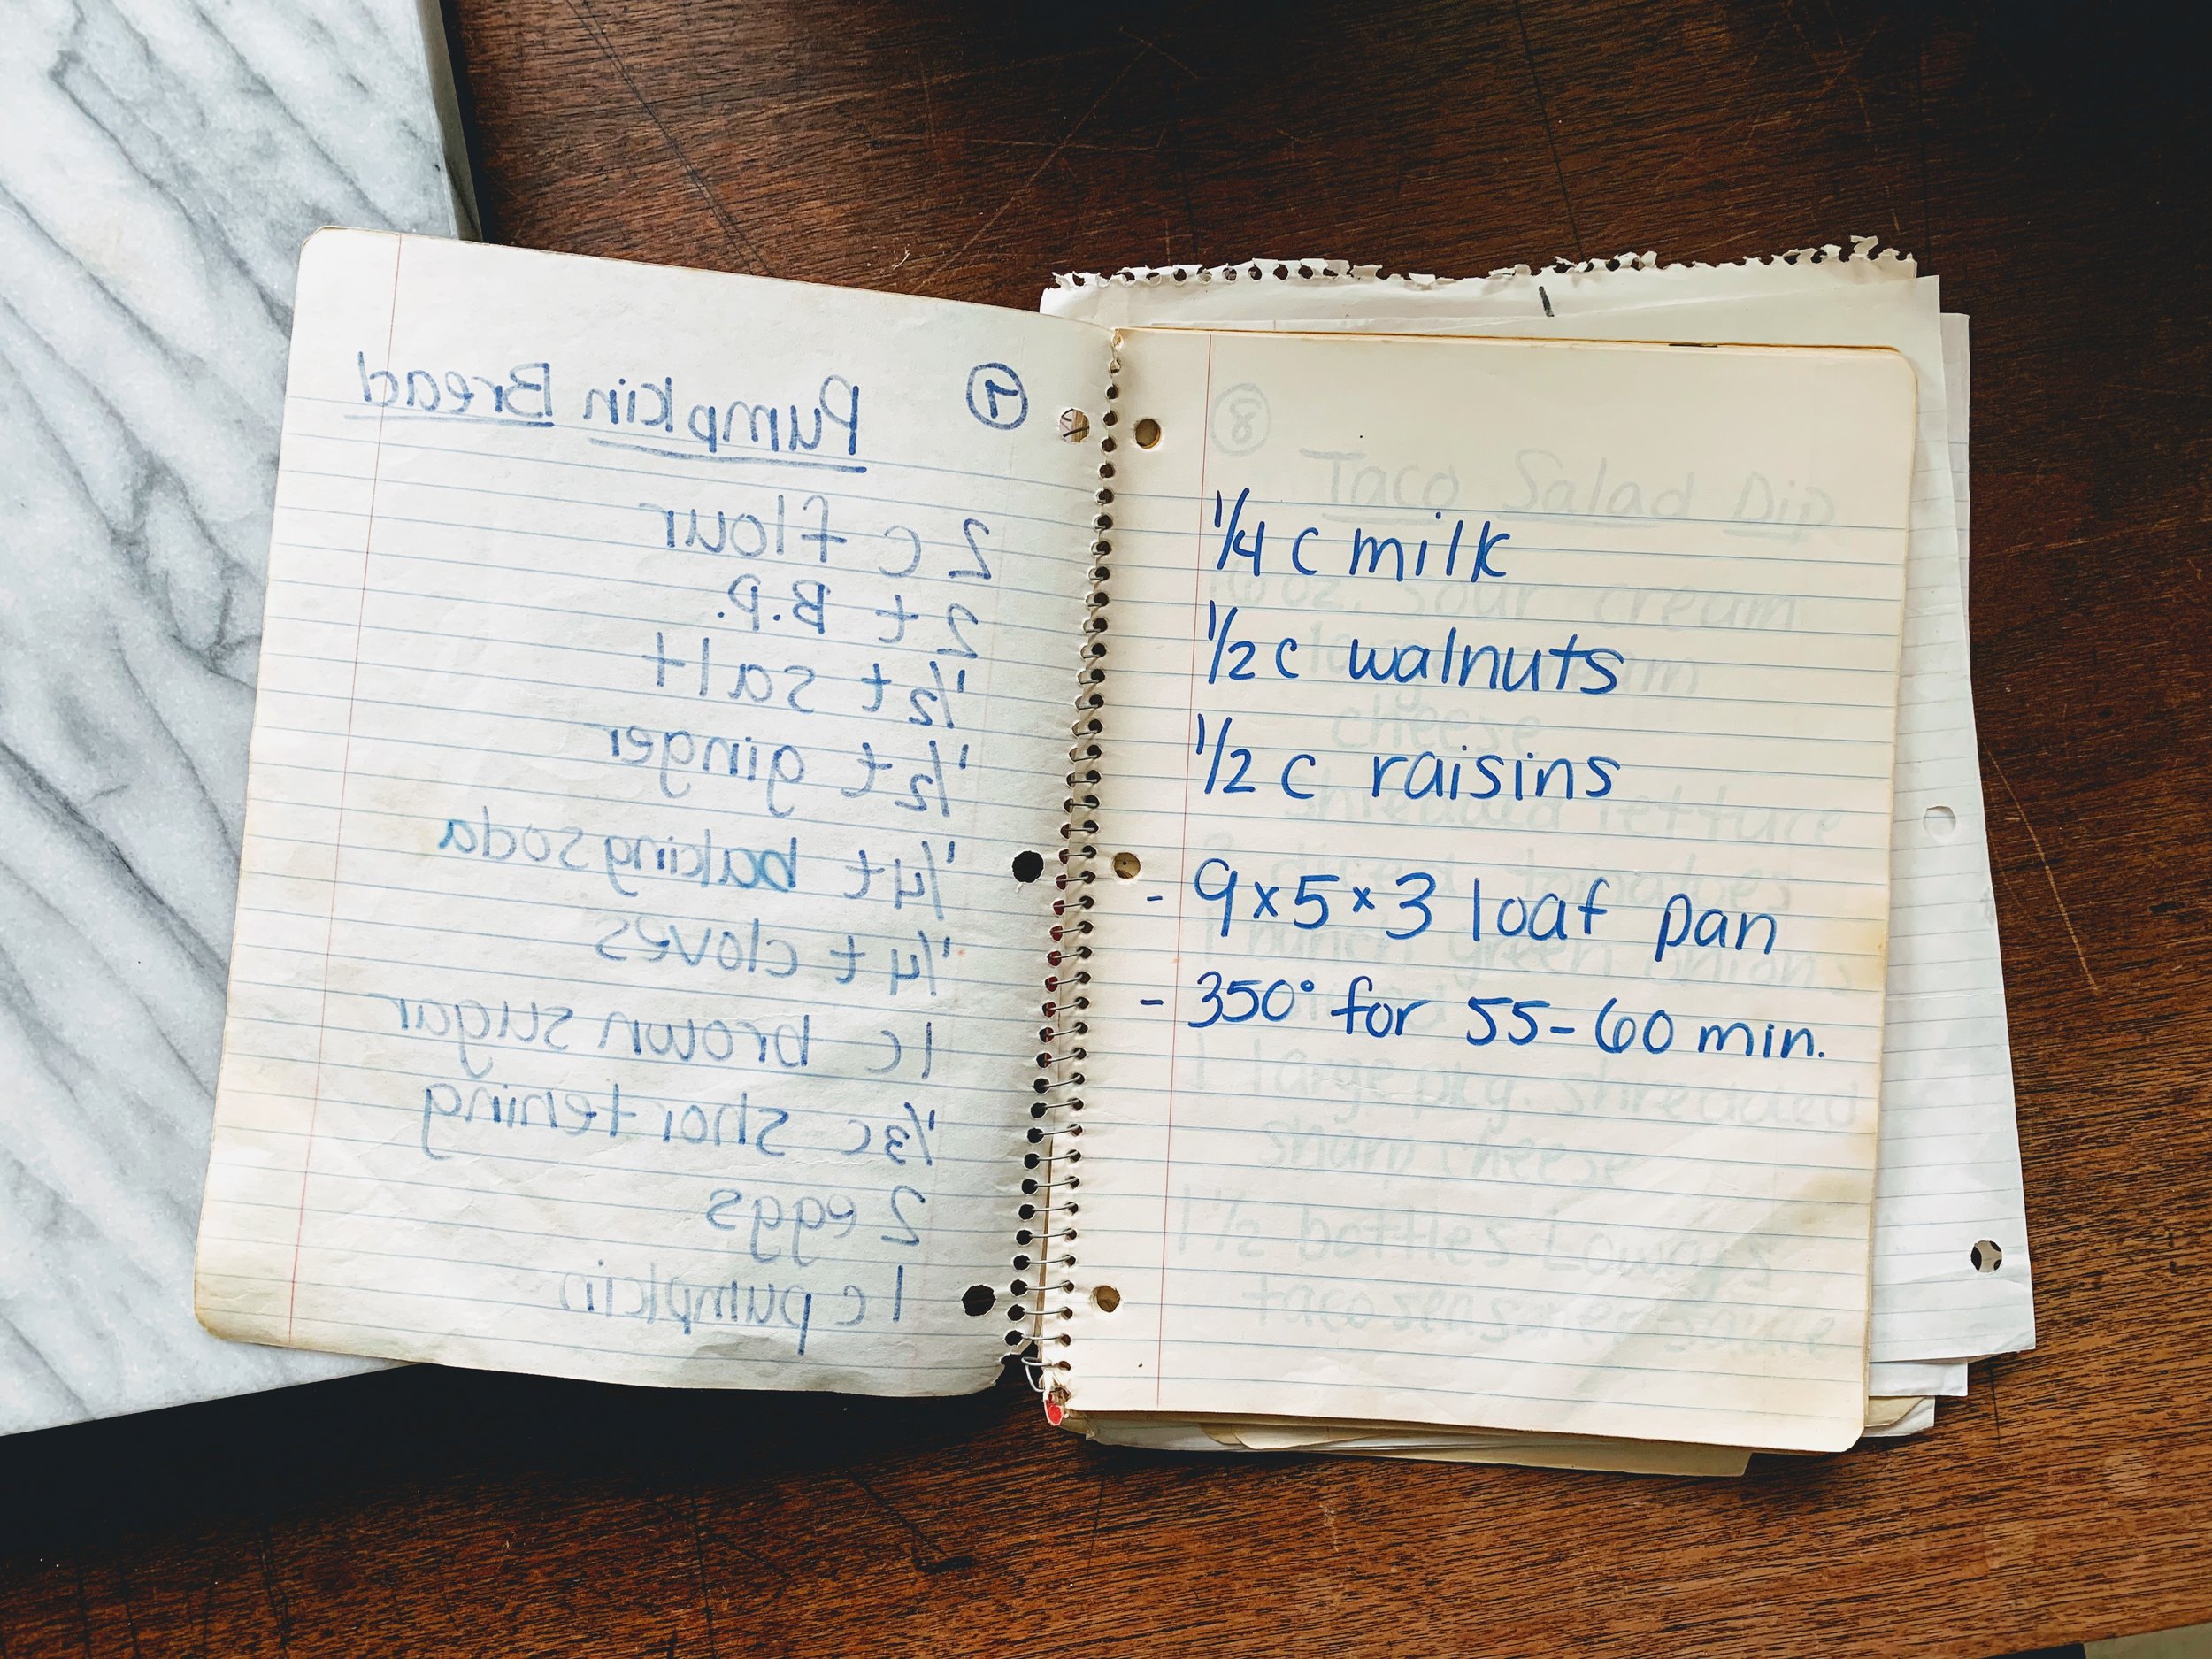 ⑦ Pumpkin Bread
2 c flour
2 t B.P.
1/2 t salt
1/2 t ginger
1/4 t baking soda
1/4 t cloves
1 c brown sugar
1/3 c shortening
2 eggs
1 c pumpkin
1/4 c milk
1/2 c walnuts
1/2 c raisins
- 9x5x3 loaf pan
- 350° for 55-60 min.
⑧
Taco Salad Dip
16 oz. sour cream
cheese
shredded lettuce
diced tomatoes
1 bunch green onions
1 large pkg. shredded
sharp cheese
1 1/2 bottles
taco